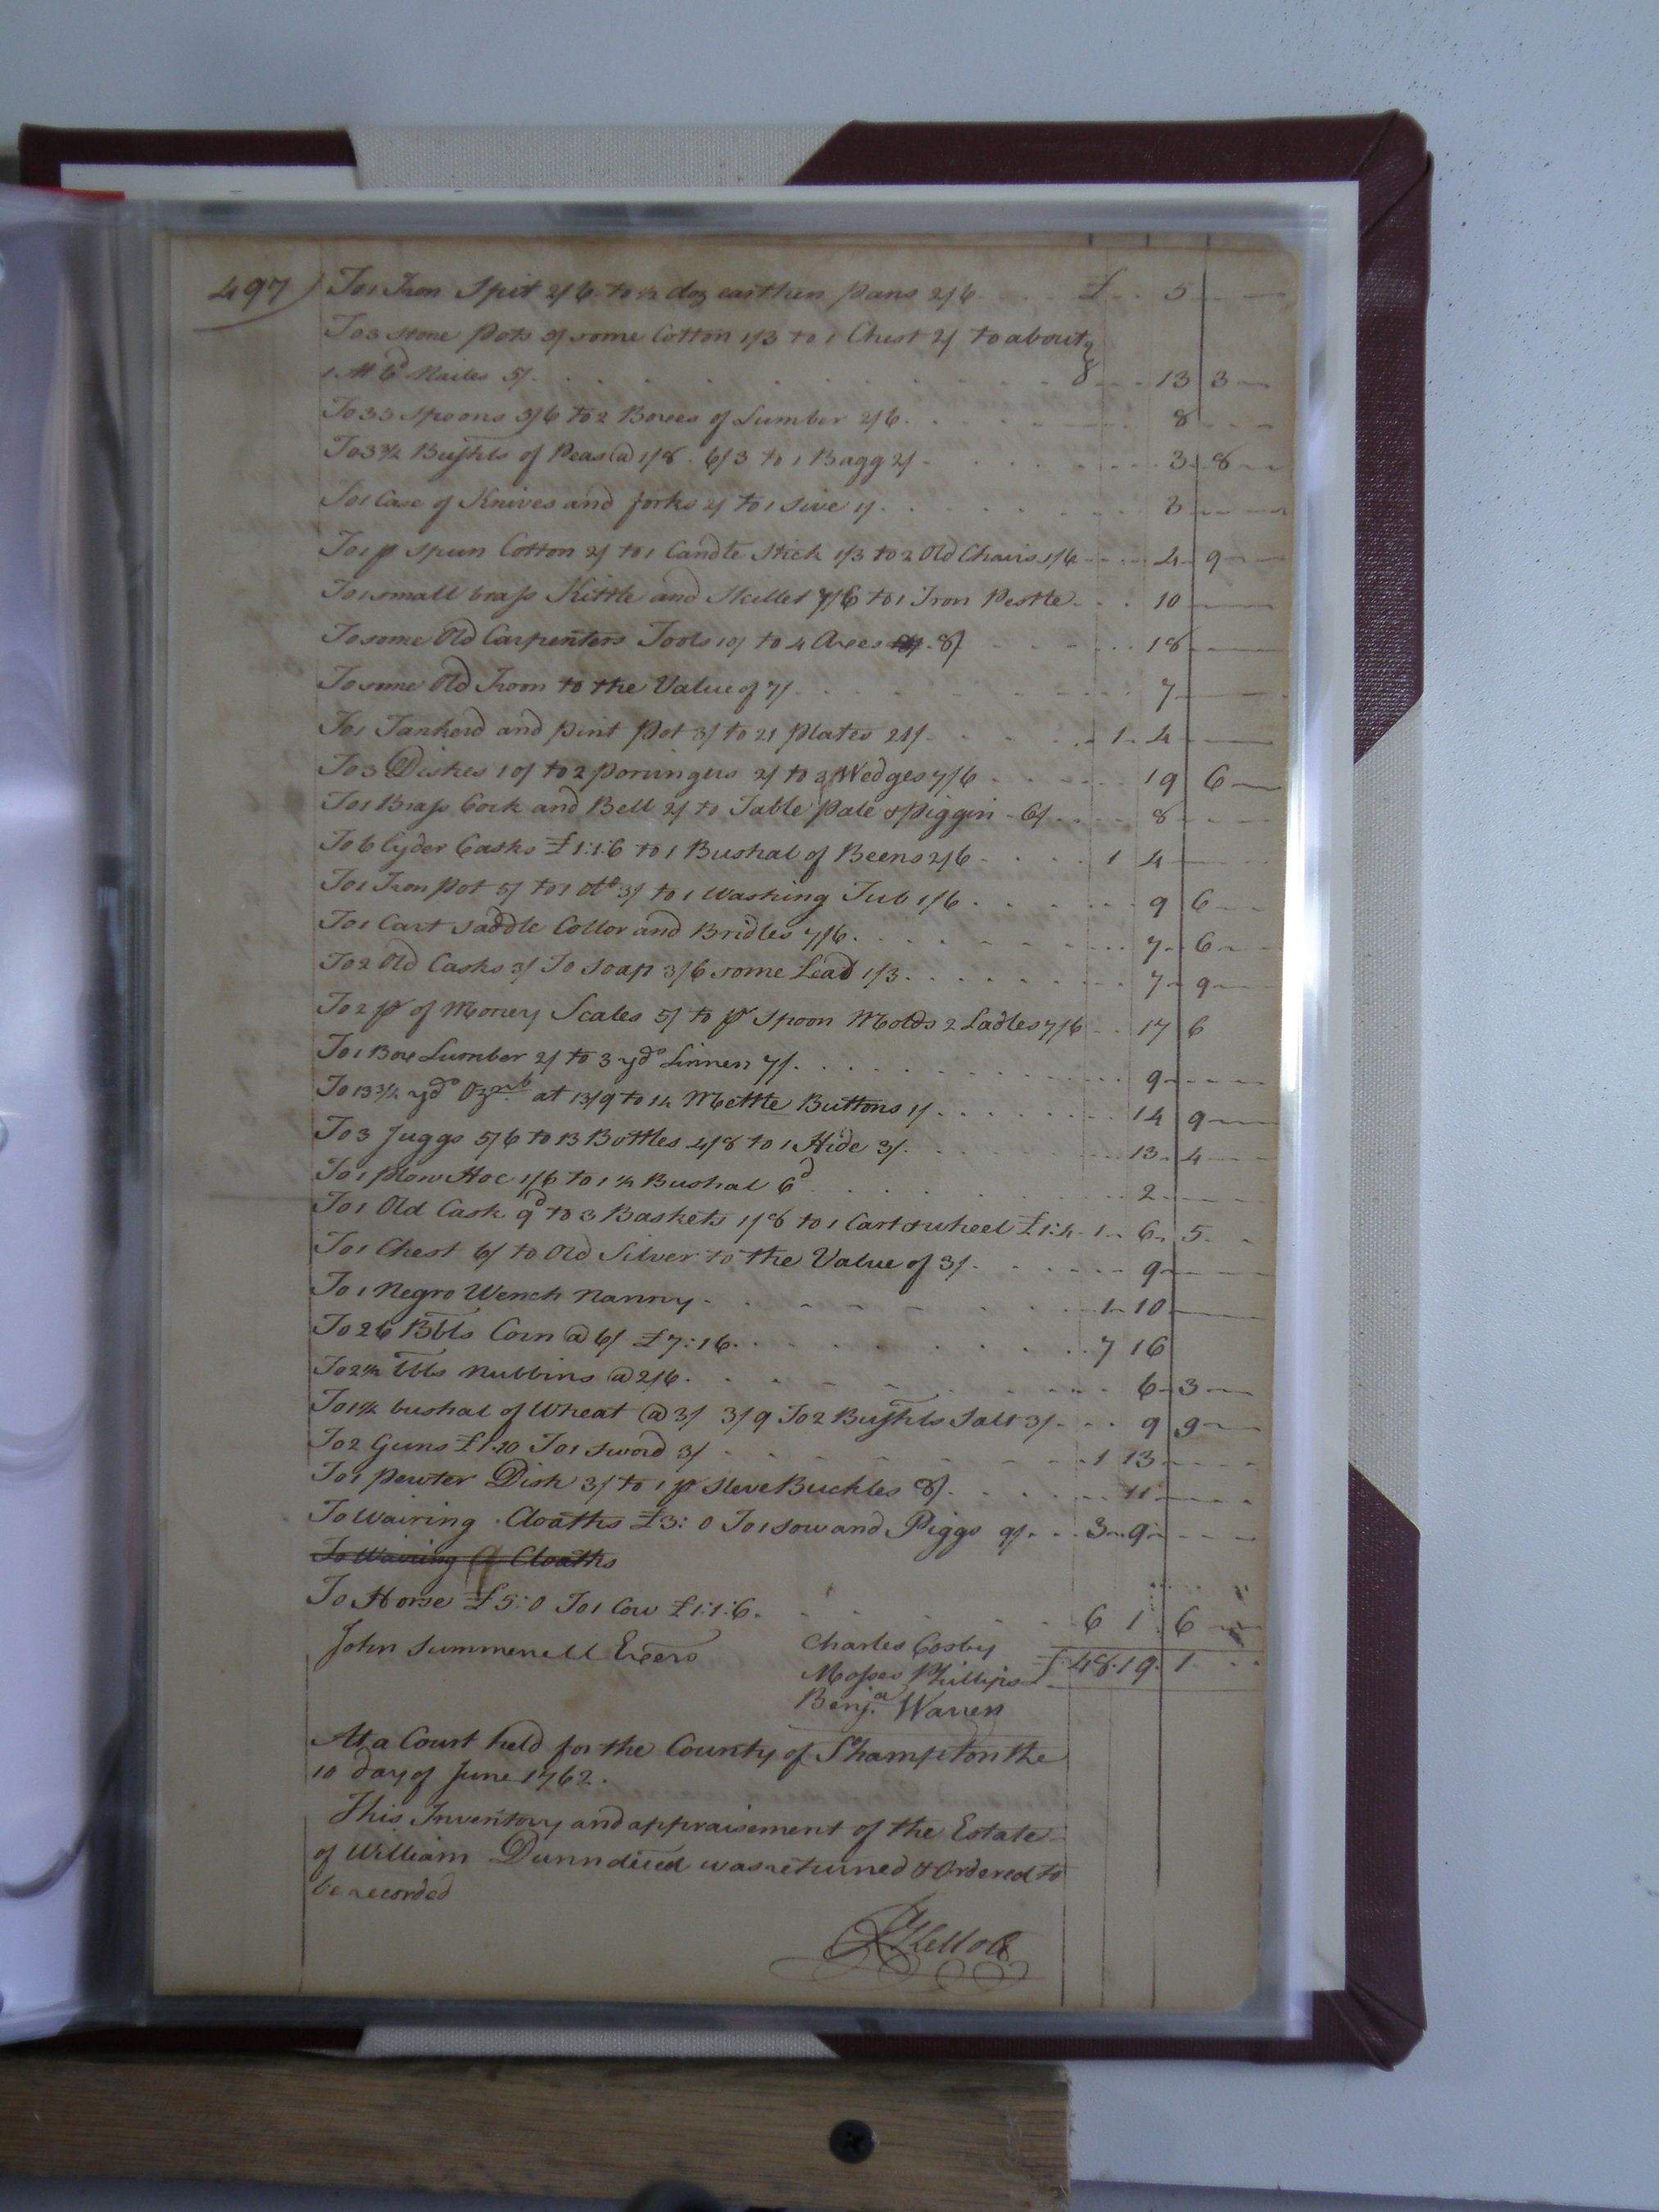 497) To 1 Iron Spit 2/6 to ½ doz earthen pans 2/6 £ 5
To 3 stone pots 3/ some Cotton 1/3 to 1 Chest 2/ to about
1 M 6d Nailes 5/. 13 3
To 33 spoons 3/6 to 2 Boxes of Lumber 2/6. 8
To 3¾ Bushls of Peas @ 1/8. 6/3 to 1 Bagg 2/ 3 8
To 1 Case of Knives and forks 2/ to 1 Sive 1/. 3
To 1 p Spun Cotton 2/ to 1 Candle Stick 1/3 to 2 Old Chairs 1/6 4 9
To 1 small brass Kittle and Skillet 7/6 to 1 Iron Pestle 10
To some Old Carpenters Tools 10/ to 4 Axes 8/ 18
To some Old Iron to the Value of 7/ 7
To 1 Tankerd and pint Pot 3/ to 21 plates 21/ 1 4
To 3 Dishes 10/ to 2 poringers 2/ to 3 Wedges 7/6 19 6
To 1 Brass Cock and Bell 2/ to Table pale & piggin 6/ 8
To 6 Cyder Casks £1:1:6 to 1 Bushal of Beens 2/6 1 4
To 1 Iron Pot 5/ to 1 do 3/ to 1 Washing Tub 1/6 9 6
To 1 Cart saddle Collor and Bridles 7/6. 7 6
To 2 Old Casks 3/ To soap 3/6 some Lead 1/3. 7 9
To 2 pr of Money Scales 5/ to pr Spoon Molds 2 Ladles 7/6 17 6
To 1 Box Lumber 2/ to 3 yds Linnen 7/. 9
To 13¾ yds Oznb at 13/9 to 14 Mettle Buttons 1/. 14 9
To 3 Juggs 5/6 to 13 Bottles 4/8 to 1 Hide 3/. 13 4
To 1 plow Hoe 1/6 to 1 ½ Bushal 6d 2
To 1 Old Cask 9d to 3 Baskets 1/8 to 1 Cart & wheel £1:4 1 6 5
To 1 Chest 6/ to Old Silver to the Value of 3/. 9
To 1 Negro Wench Nanny 1 10
To 26 Bbls Corn @ 6/ £7:16. 7 16
To 2½ bbls Nubbins @ 2/6. 6 3
To 1¼ bushal of Wheat @ 3/ 3/9 To 2 Bushls Salt 3/ 9 9
To 2 Guns £1.10 To 1 sword 3/ 1 13
To 1 pewter Dish 3/ to 1 pr Sleve Buckles 8/. 11
To Wairing Cloaths £3:0 To 1 sow and Piggs 9/. 3 9
To Wairing Cloaths
To Horse £5:0 To 1 Cow £1:1:6. 6 1 6
John Summerell Exers Charles Cosby £48.19.1
Moses Phillips
Benja Warren
At a Court held for the County of Shampton the
10 day of June 1762.
This Inventory and appraisement of the Estate
of William Dunn deced was returned & Ordered to
be recorded
R Kello